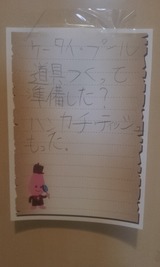 ケータイ・プール
道具つくって
準備した?
ハンカチ・テッシュ
もった。